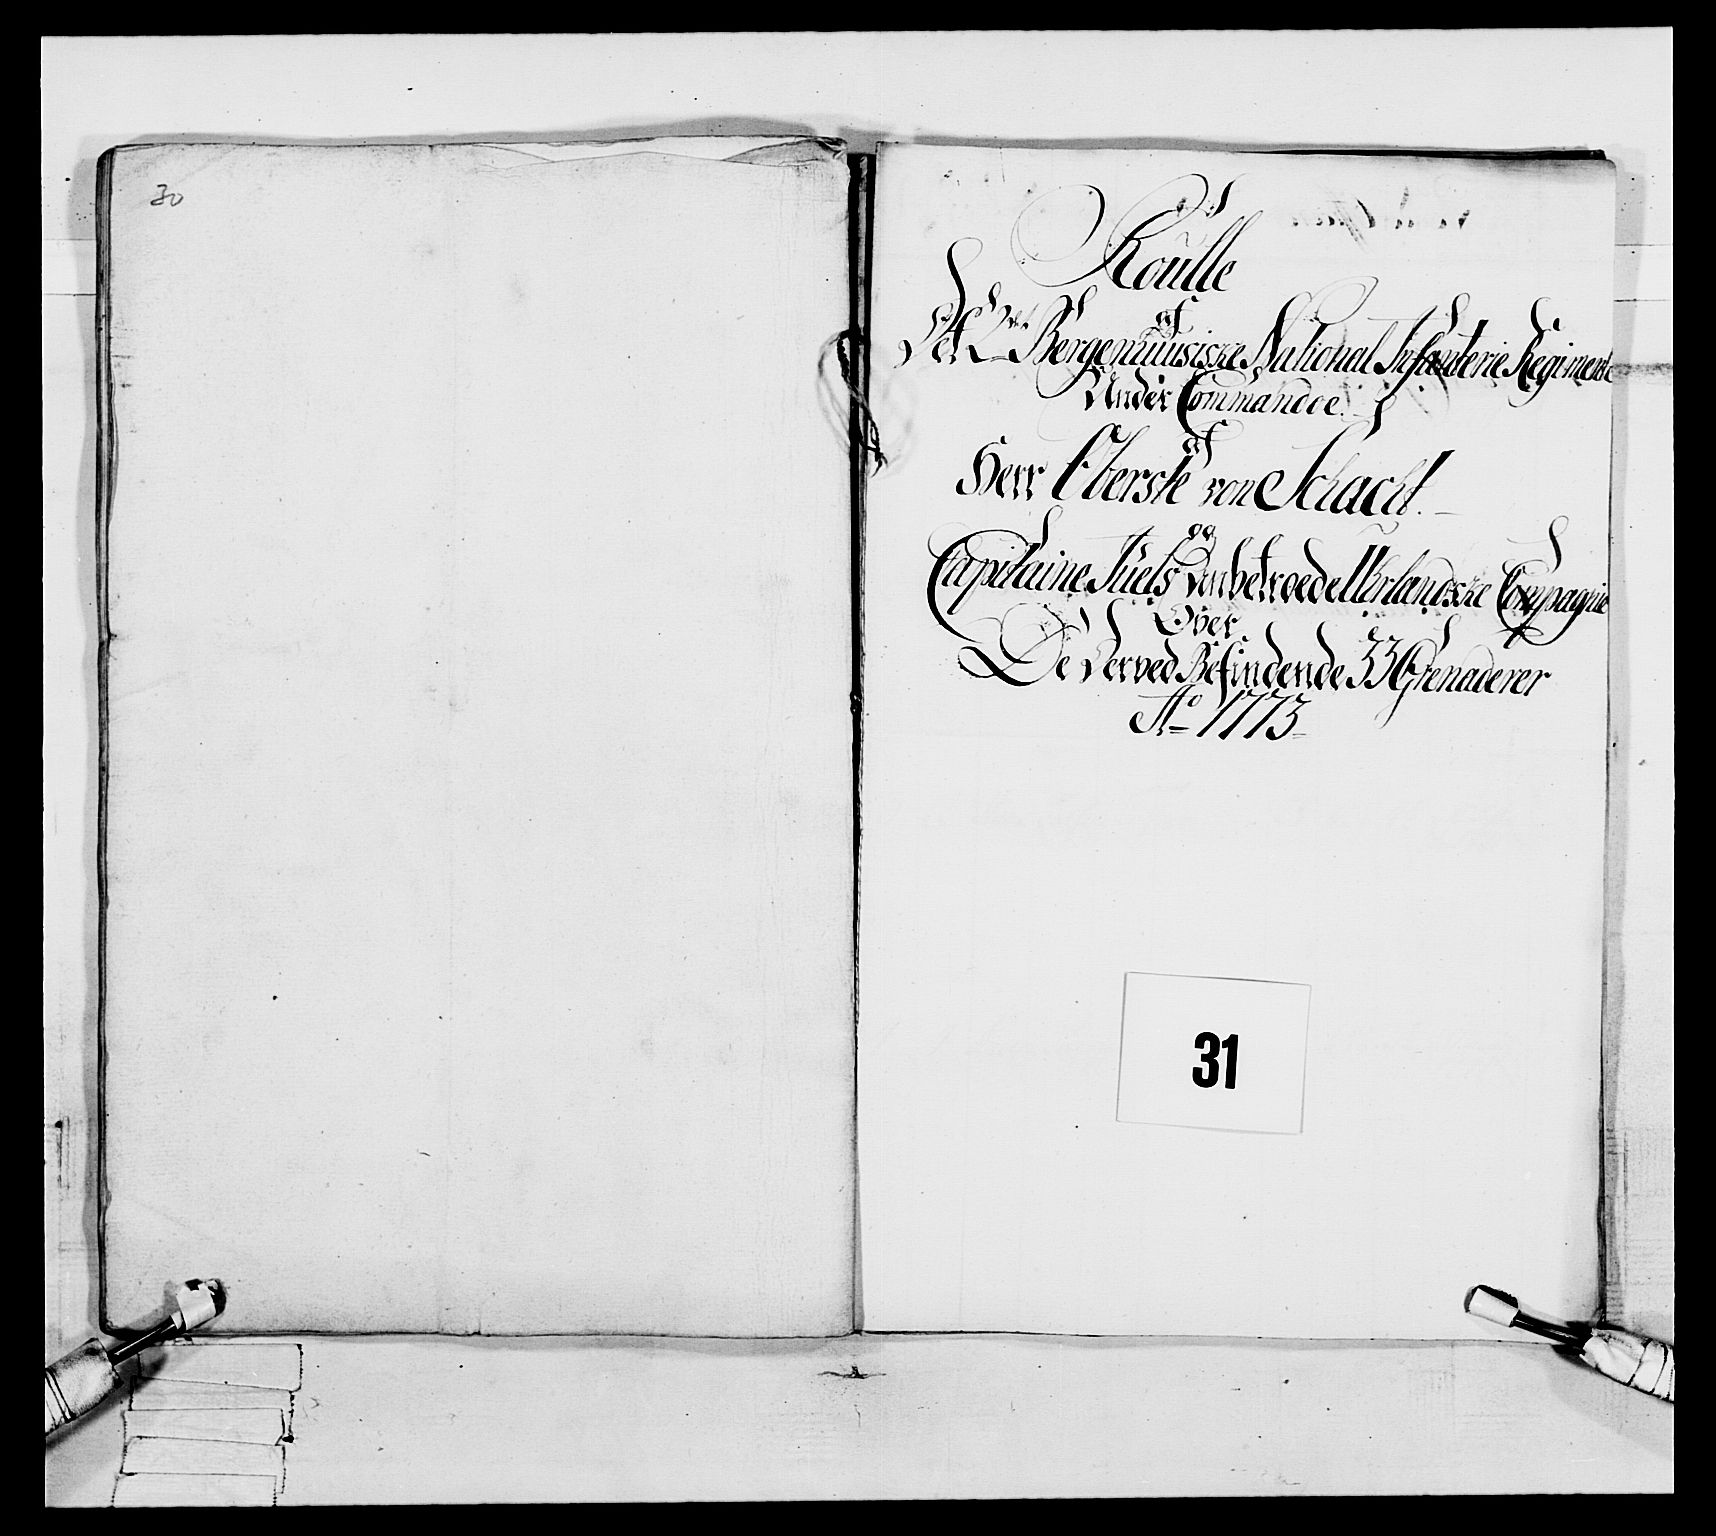 30
Roulle
af
Det 2det Bergenhuusiske National Infanterie Regiment
Under Commandoe
af
Herr Oberste von Schacht.
og
Capitaine Juels Anbetroede Urlandske Compagnie
Over
De Derved Befindende 33 Grenaderer
Ao 1773
31